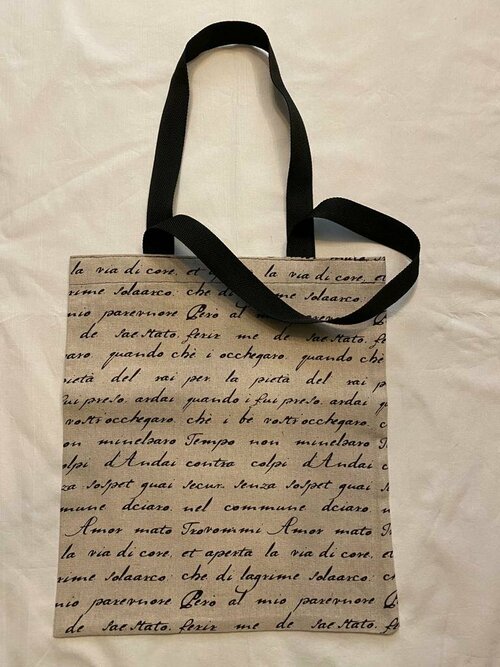 la via di core. et la via di core. et
rime solaarco: che di solaarco.
mio parevnore Pero al
de Sae Stato. ferir me de Sae Stato. f
aro. quando chè i occhegaro. quando chè
ietà del rai per la pietà del rai p
ui preso. ardai quando i fui preso. ardai q
vostri occhegaro. chè i be vostri occhegaro. c
on minelsaro Tempo non minelsaro T
olpi d'Andai contra colpi d'Andai c
za sospet quai secur. senza sospet quai
mune dciaro. nel commune dciaro.
Amor mato Trovommi Amor mato T
la via di core. et aperta la via di core. et
rime solaarco: che di lagrime solaarco: c
mio parevnore Pero al mio parevnore P
de Sae Stato. ferir me de Sae Stato. f